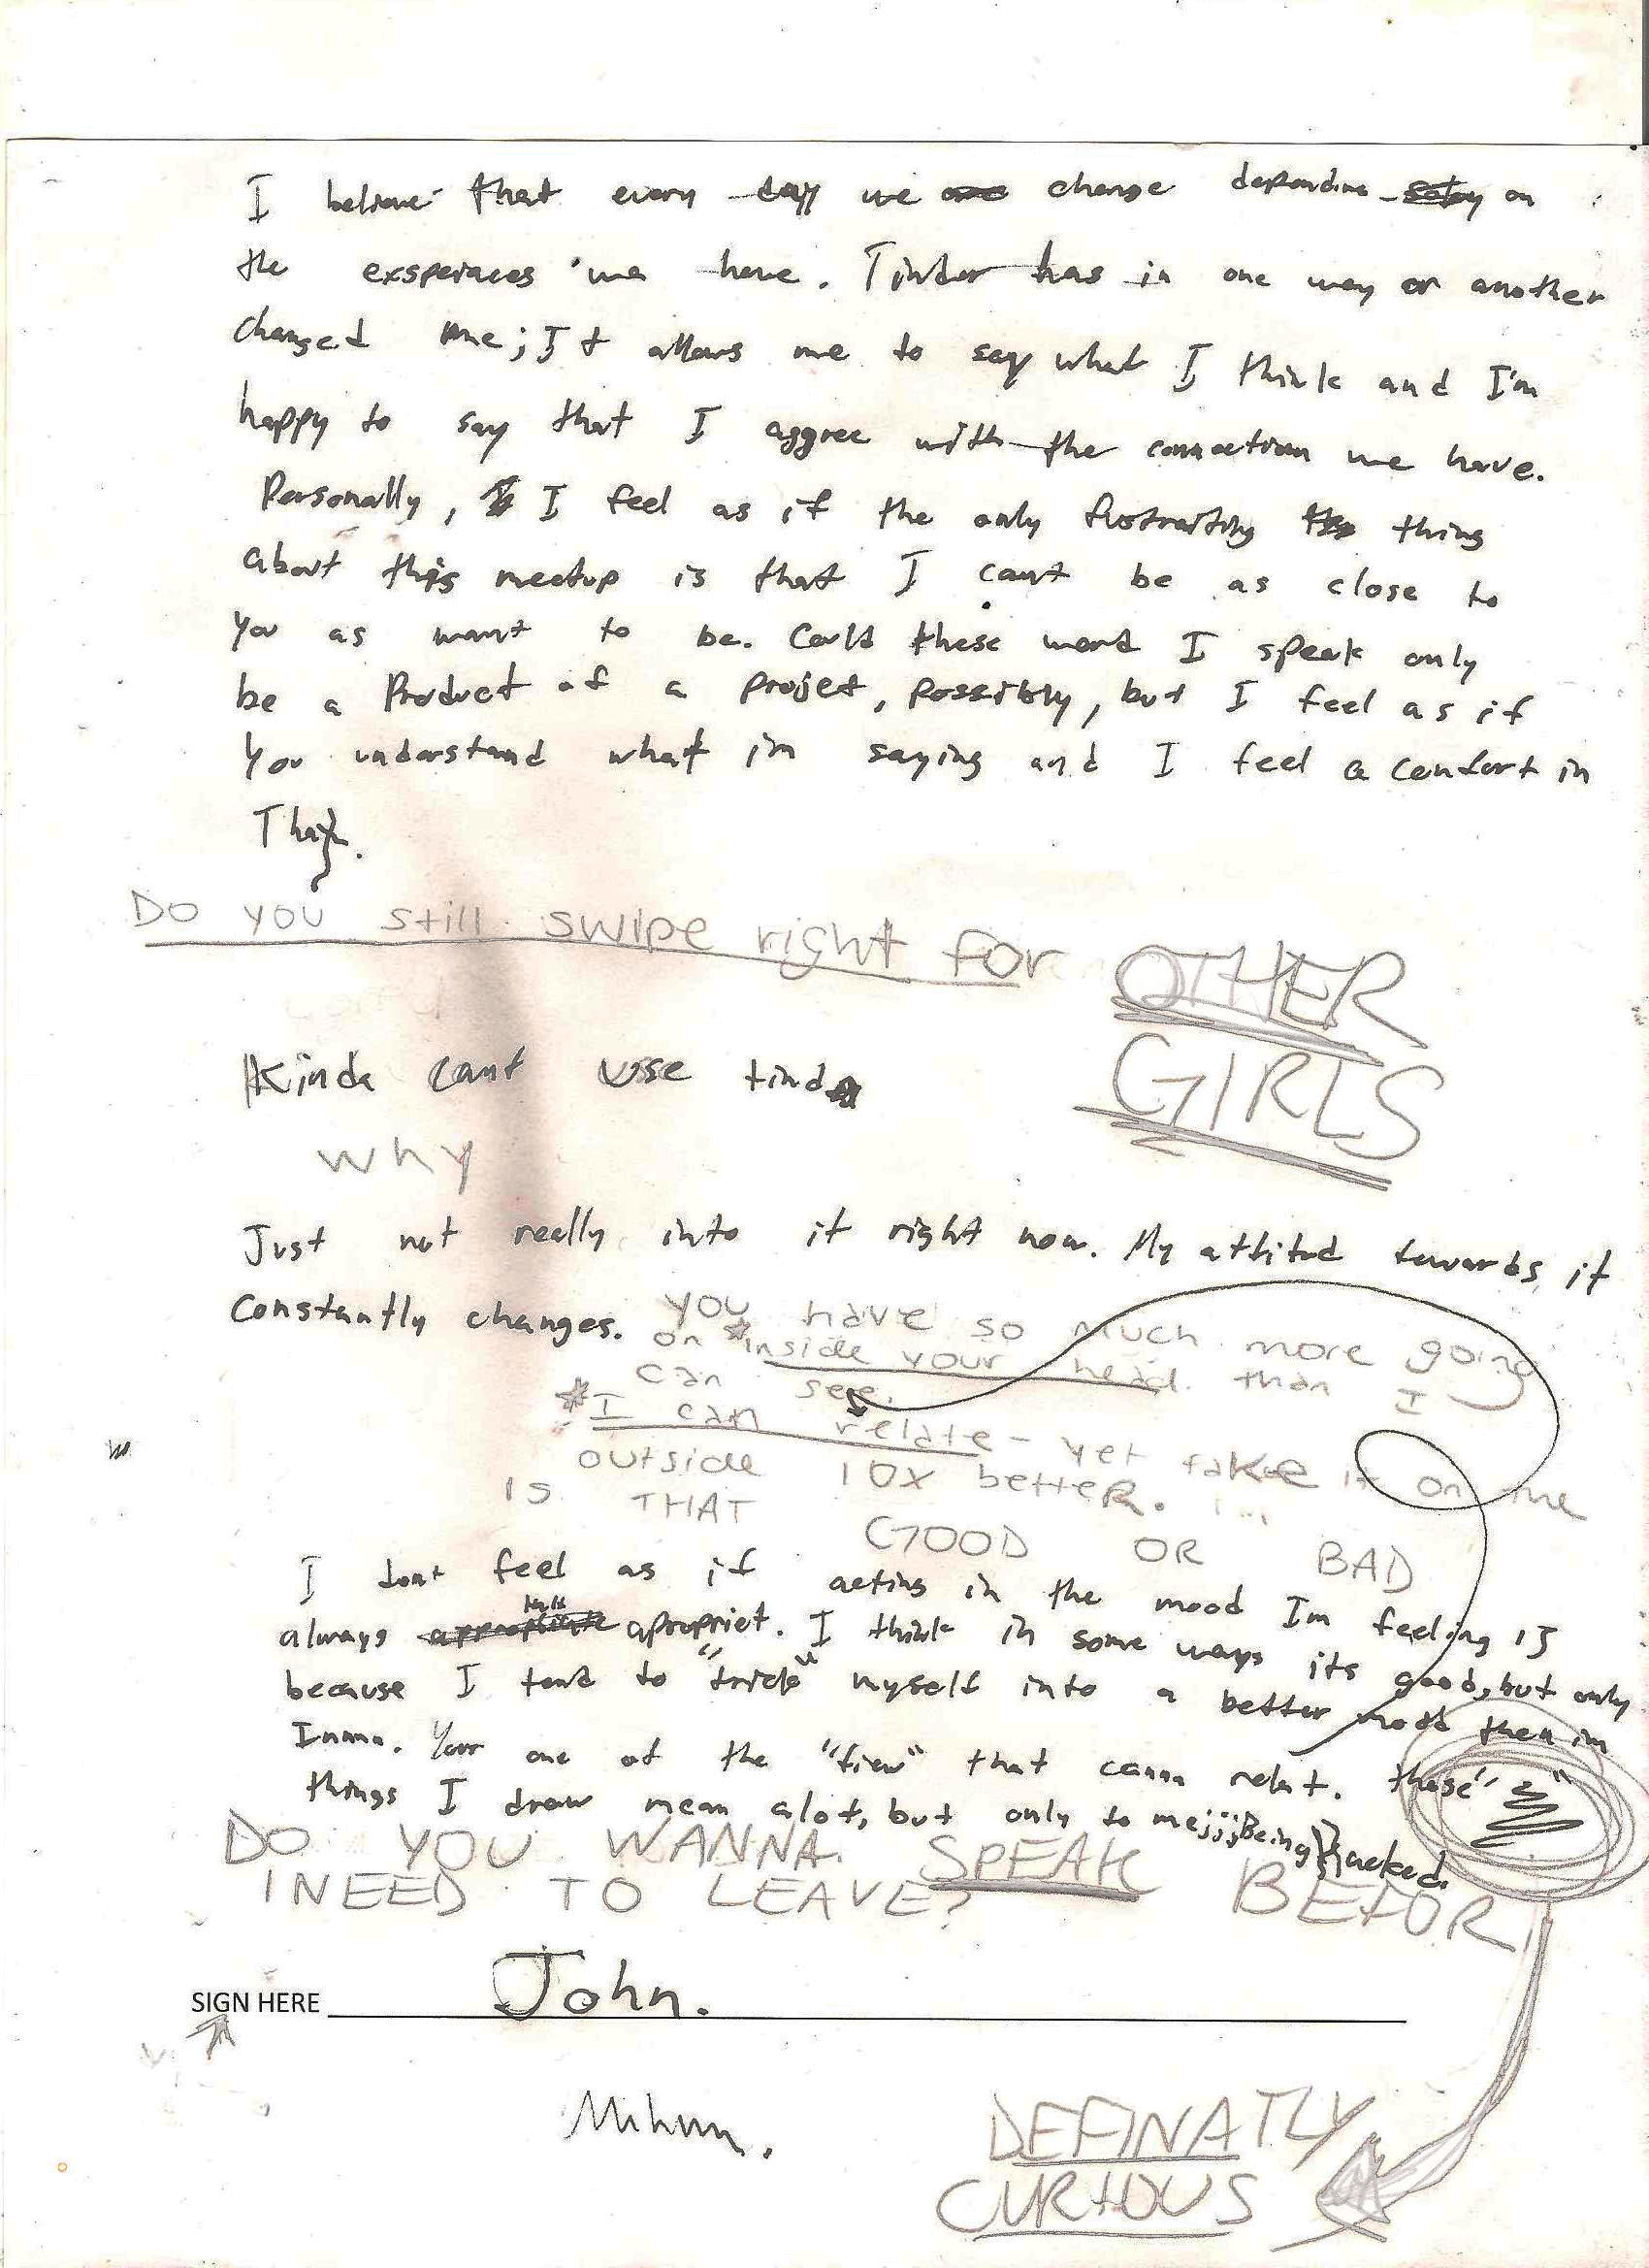 I believe that every day we change depending on
the exsperiaces we have. Tinder has in one way or another
changed me; It allows me to say what I think and I'm
happy to say that I aggree with the connection we have.
Personally, I feel as if the only thing
about this meetup is that I cant be as close to
you as want to be. Could these word I speak only
be a Product of a projet, possibly, but I feel as if
You understand what im saying and I feel a comfort in
That.
DO YOU still swipe right for OTHER
GIRLS
Kinda cant use
why
Just not really into it right now. My attitud towards it
constantly changes.
you have so much more going
on inside your head than I
can see.
I can relate - yet fake it on the
outside 10x betteR.
IS THAT GOOD OR BAD
I dont feel as if acting in the mood Im feeling is
always apropriet. I think in some ways its good, but only
because I tend to "trick" myself into a better mood then im
Your one of the "few" that canna relat. those " "
things I draw mean alot, but only to me;;;; Being naked.
DO YOU WANNA SPEAK BEFOR
I NEED TO LEAVE?
SIGN HERE John.
DEFINATLY
CURIOUS